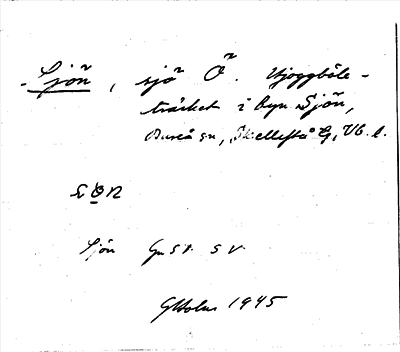 - Sjöñ, sjö Ö̃. Hjoggböle-
träsket i byn Sjöñ,
Bureå sn, Skellefteå G, Vb. l.
Sjön GnSt. S V.
GHolm 1945